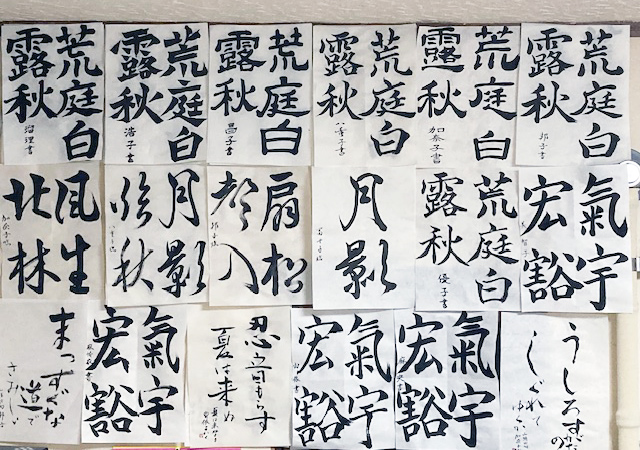 荒庭白
露秋
荒庭白
露秋
浩子書
荒庭白
露秋
昌子書
荒庭白
露秋
荒庭白
露秋
加奈子書
荒庭白
露秋
邦子書
風生
北林
月影
秋
扇松
入
月影
荒庭白
露秋
優子書
氣宇
宏豁
まっすぐな
道で
さみしい
氣宇
宏豁
忍音もらす
夏は来ぬ
氣宇
宏豁
氣宇
宏豁
うしろすがたの
しぐれて
ゆくか